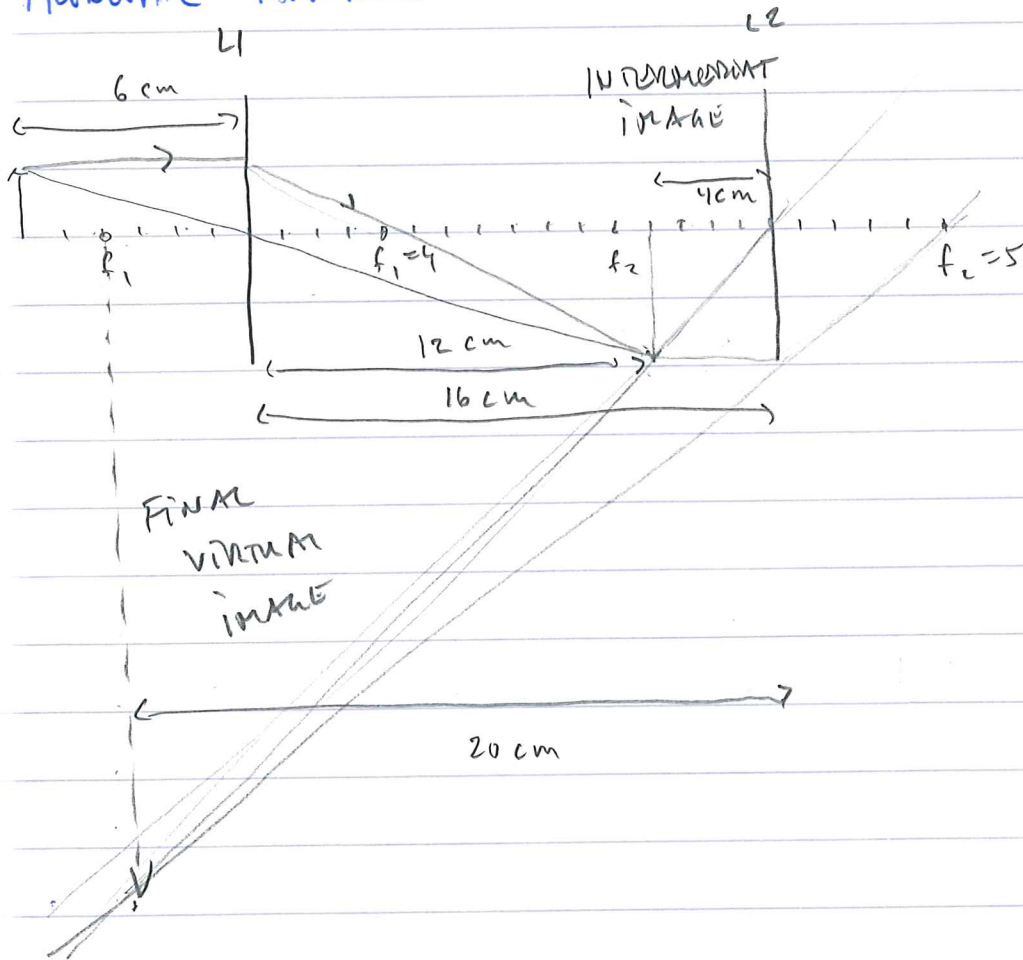 L1
L2
6 cm
INTERMEDIAT
IMAGE
4cm
f₁
f₁=4
f₂
f₂=5
12 cm
16 cm
FINAL
VIRTUAL
IMAGE
20 cm